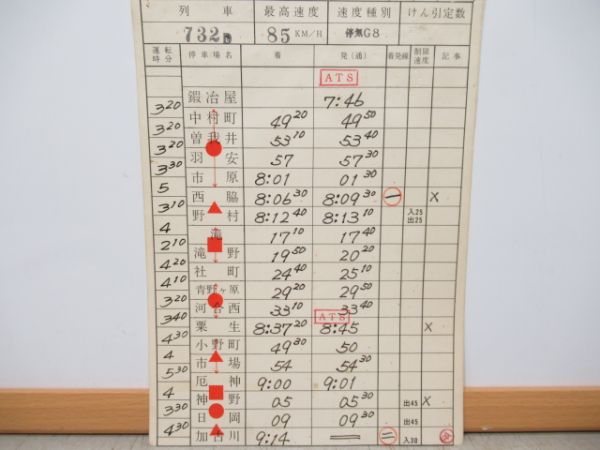 列車 最高速度 速度種別 けん引定数
732D 85KM/H 停気G8
運転時分 停車場名 着 発(通) 着発線 制限速度 記事
ATS
鍛冶屋 7:46
320 中村町 4920 4950
320 曽我井 5310 5340
320 羽安 57 5730
330 市原 8:01 0130
5 西脇 8:0630 8:0930 一 X
310 野村 8:1240 8:1310 入25 出25
4 滝 1710 1740
210 滝野 1950 2020
420 社町 2440 2510
410 青野ヶ原 2920 2950
320 河合西 3310 3340
ATS
340 粟生 8:3720 8:45 X
430 小野町 4930 50
4 市場 54 5430
530 厄神 9:00 9:01
4 神野 05 0530 出45 X
330 日岡 09 0930 出45
430 加古川 9:14 = 二 入30